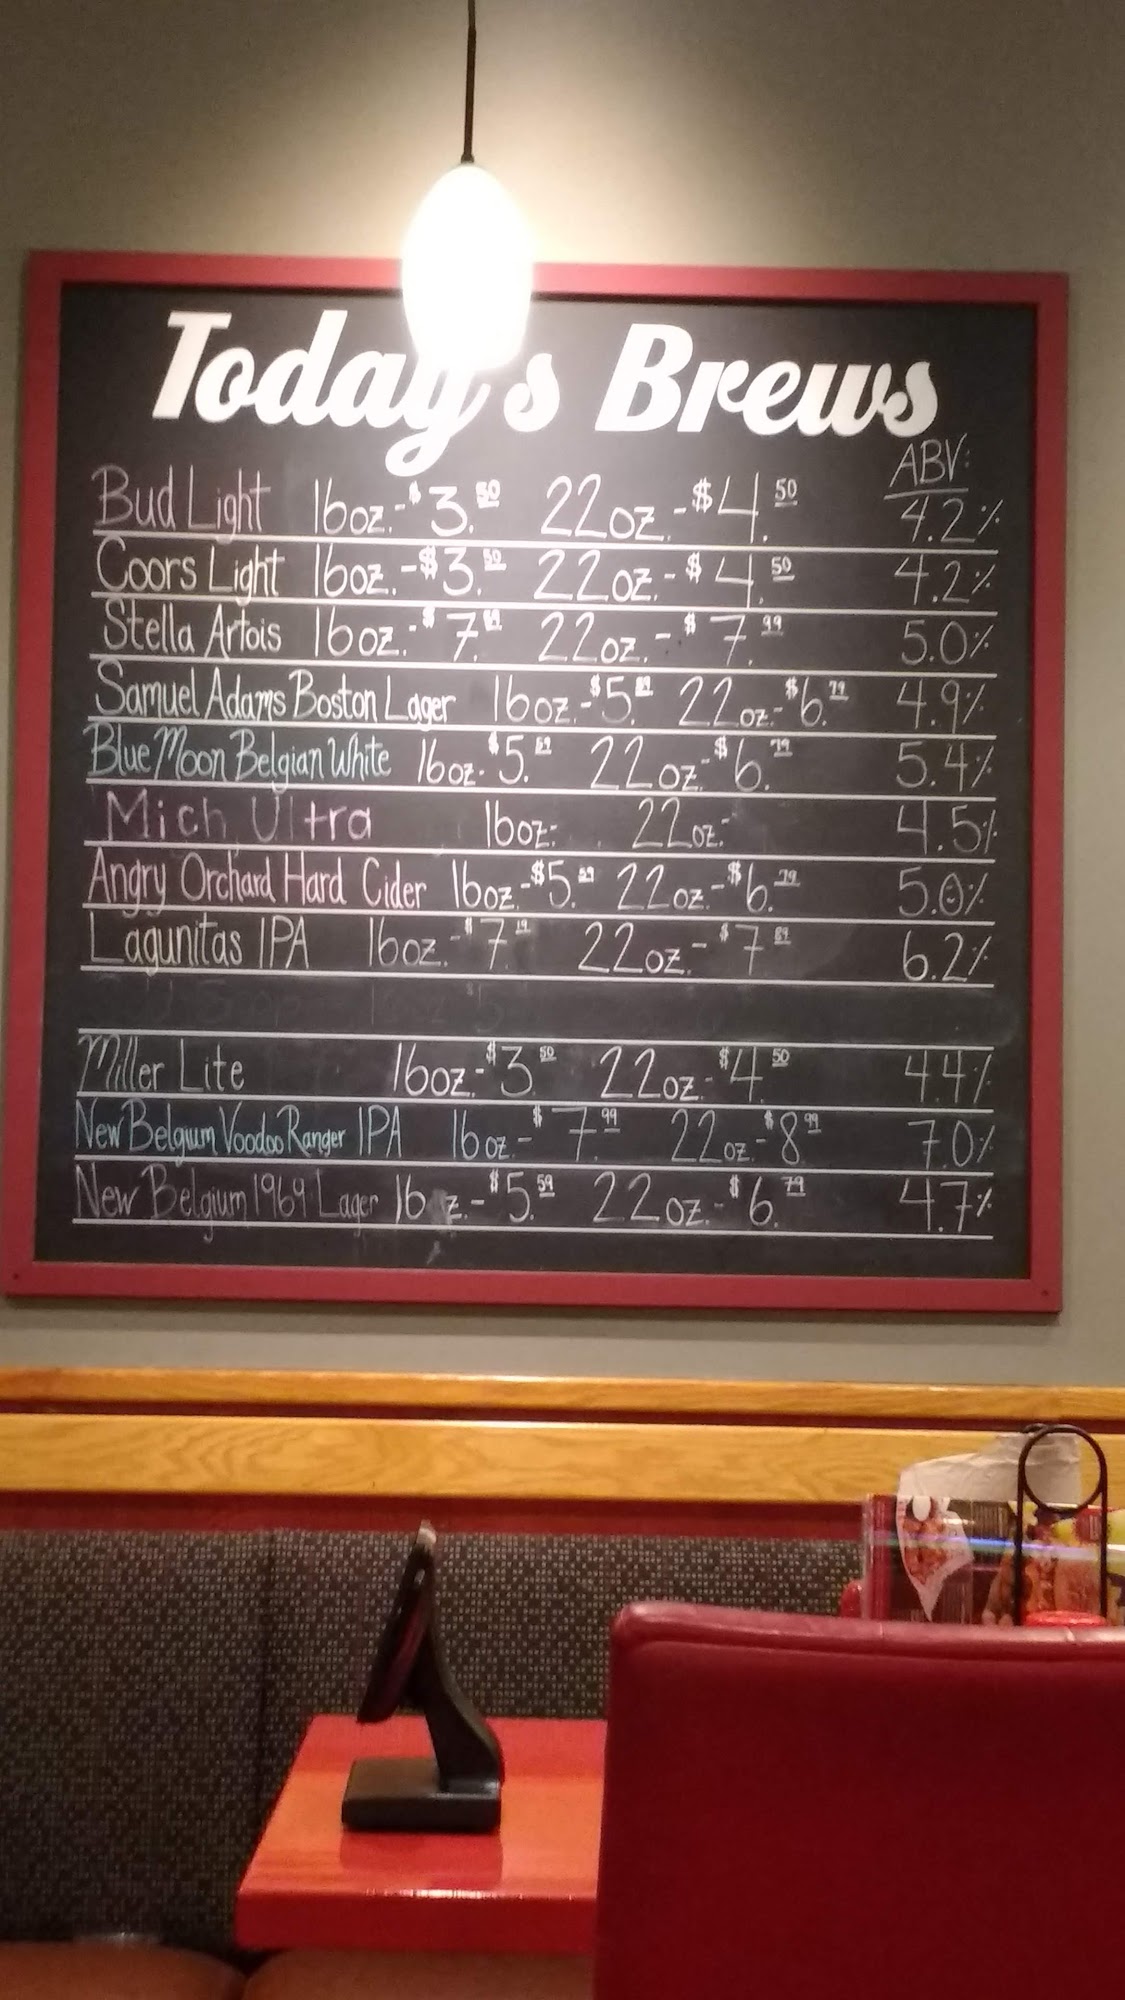 Today's Brews
ABV:
Bud Light 16oz.-$3.50 22oz.-$4.50 4.2%
Coors Light 16oz.-$3.50 22oz.-$4.50 4.2%
Stella Artois 16oz.- 22oz.-$7.99 5.0%
Samuel Adams Boston Lager 16oz.- 22oz.-$6.79 4.9%
Blue Moon Belgian White 16oz- 22oz-$6.79 5.4%
Mich Ultra 16oz- 22oz- 4.5%
Angry Orchard Hard Cider 16oz.-$5.59 22oz.-$6.79 5.0%
Lagunitas IPA 16oz.-$7.19 22oz.-$7.89 6.2%
Miller Lite 16oz.-$3.50 22oz.-$4.50 4.4%
New Belgium Voodoo Ranger IPA 16oz-$7.99 22oz.-$8.99 7.0%
New Belgium 1969 Lager 16 z.-$5.59 22oz.-$6.79 4.7%